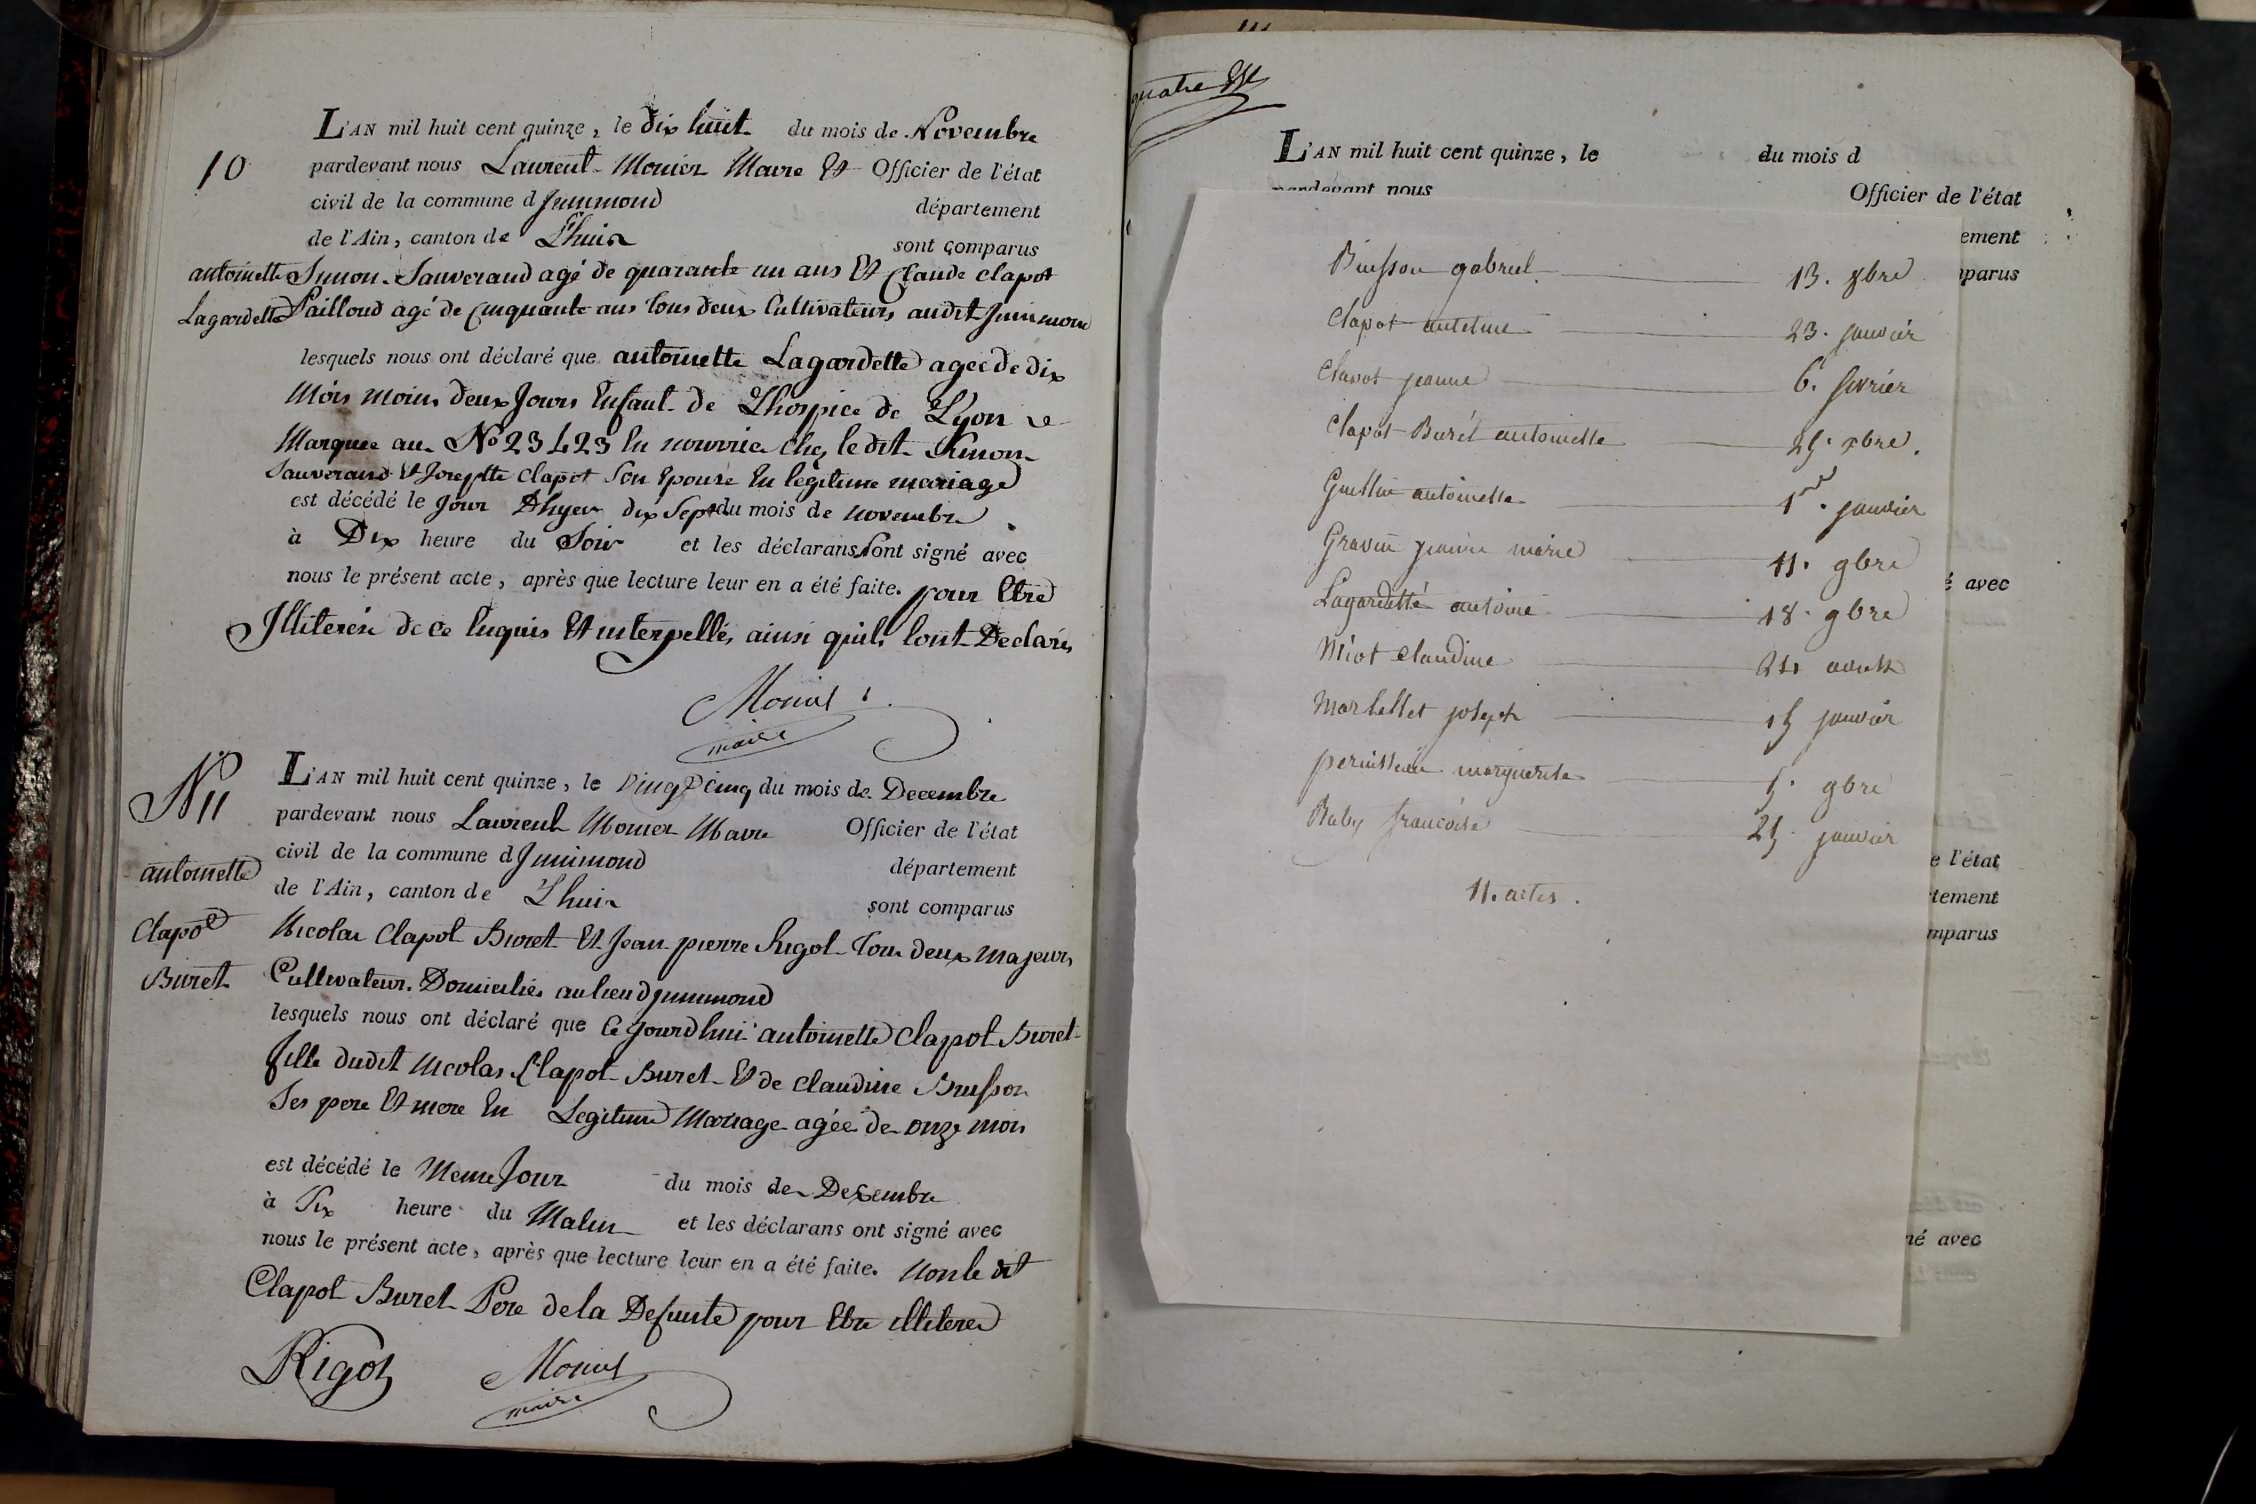 10
antoinette
Lagardette
L'AN mil huit cent quinze, le dix huit du mois de Novembre
pardevant nous Laurent Monier Maire Et Officier de l'état
civil de la commune d Junimond département
de l'Ain, canton de Lhuis sont comparus
Simon Sauverand agé de quarante un ans Et Claude Clapot
Pailloud agé de Cinquante ans tous deux Cultivateurs audit Junimond
lesquels nous ont déclaré que antoinette Lagardette agée de dix
Mois moins deux Jours Enfant de Lhospice de Lyon
Marquée au No 23423 En nourrice chez le dit Simon
Sauverand Et Josephte Clapot Son Epouse En legitime mariage
est décédé le Jour Dhyer dix Sept du mois de novembre
à Dix heure du Soir et les déclarans Sont signé avec
nous le présent acte, après que lecture leur en a été faite. pour Etre
Illiterés de ce Enquis Et interpellés ainsi quils lont Declarés
Monier
maire
N 11
antoinette
Clapot
Buret
L'AN mil huit cent quinze, le Vingt Cinq du mois de Decembre
pardevant nous Laurent Monier Maire Officier de l'état
civil de la commune d Junimond département
de l'Ain, canton de Lhuis sont comparus
Nicolas Clapot Buret Et Jean pierre Rigot Tous deux majeurs
Cultivateurs Domiciliés au lieu d Junimond
lesquels nous ont déclaré que Ce Jourdhui antoinette Clapot Buret
fille dudit Nicolas Clapot Buret Et de Claudine Buisson
Ses pere Et mere En Legitime Mariage agée de onze mois
est décédé le Meme Jour du mois de Decembre
à Six heure du Matin et les déclarans ont signé avec
nous le présent acte, après que lecture leur en a été faite. Non le dit
Clapot Buret Pere de la Defunte pour Etre illiteré
Rigot
Monier
maire
quatre
L'AN mil huit cent quinze, le du mois d
pardevant nous Officier de l'état
ement
mparus
Buisson gabriel 13. 8bre
Clapot antelme 23. janvier
Clapot jeanne 6. fevrier
Clapot Buret antoinette 25. xbre.
Guillin antoinette 1er. janvier
Gravin jeanne marie 11. 9bre
Lagardette antoine 18. 9bre
Miot Claudine 21. aoust
Martellet joseph 15 janvier
marguerite 5. 9bre
Baby francoise 25. janvier
11. actes.
é avec
e l'état
rtement
mparus
né avec